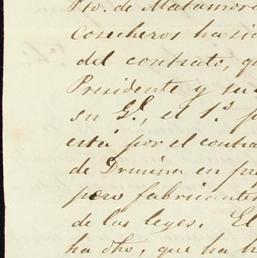 Pto. de Matamoro
Cosecheros ha sid
del contrato, qu
Presidente y su
su Gl., el 1.º p
está por el contra
de Druina en pr
pero fabricante
de las leyes. El
ha dho, que ha h